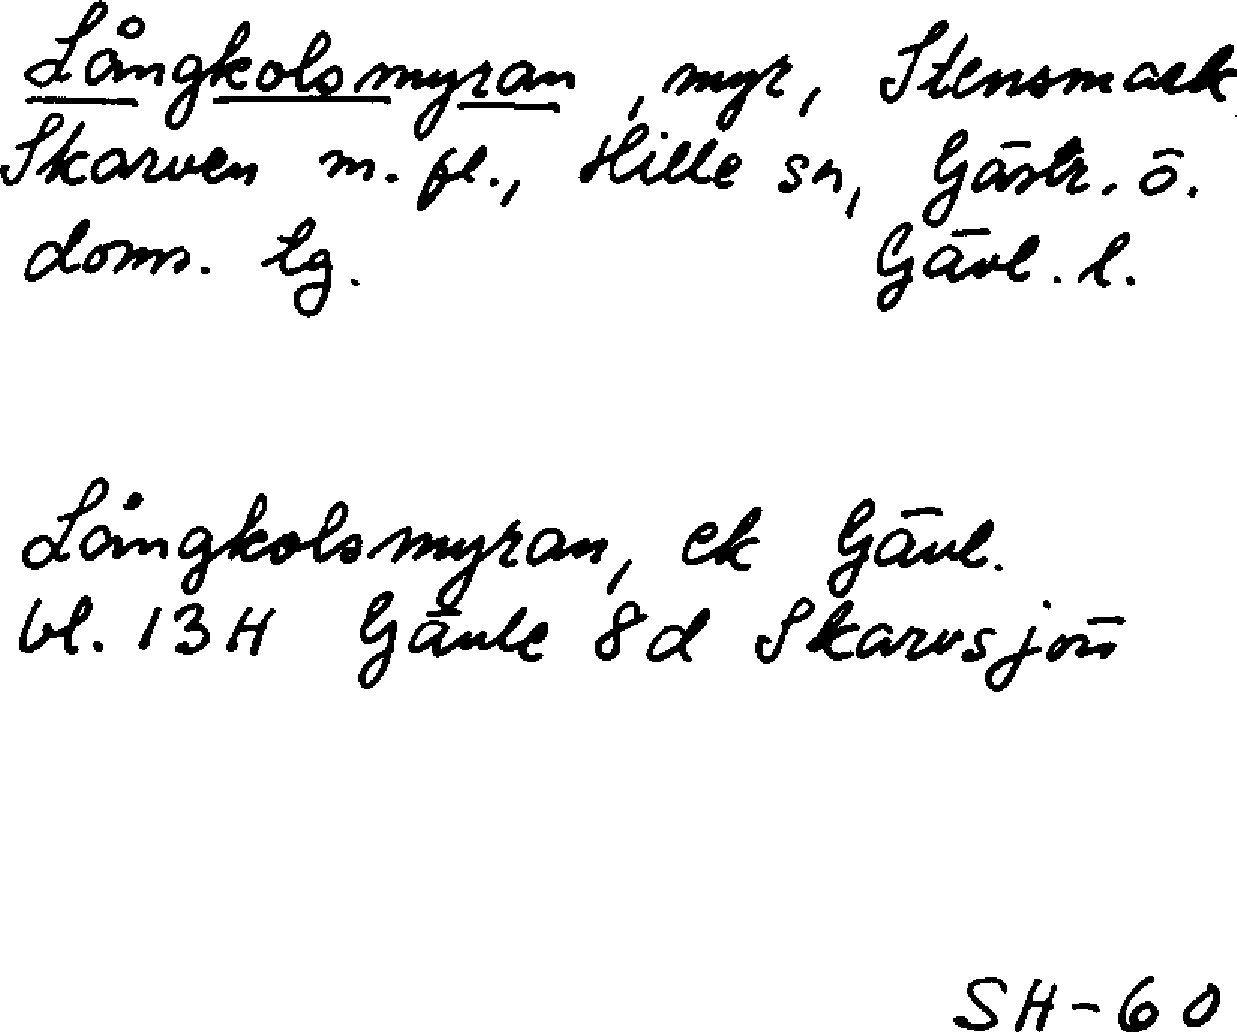 Långkolsmyran, myr, Stensmark
Skarven m. fl., Hille sn, Gästr. ö.
doms. lg. Gävl. l.
Långkolsmyran, ek Gävl.
bl. 13H Gävle 8d Skarvsjön
SH-60